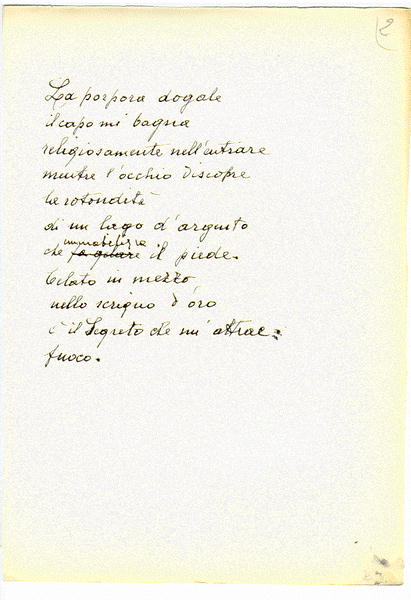 2
La porpora dogale
il capo mi bagna
religiosamente nell'entrare
mentre l'occhio discopre
la rotondità
di un lago d'argento
immobilizza
che fa gelare il piede.
Celato in mezzo
nello scrigno d'oro
è il Segreto che m'attrae:
fuoco.